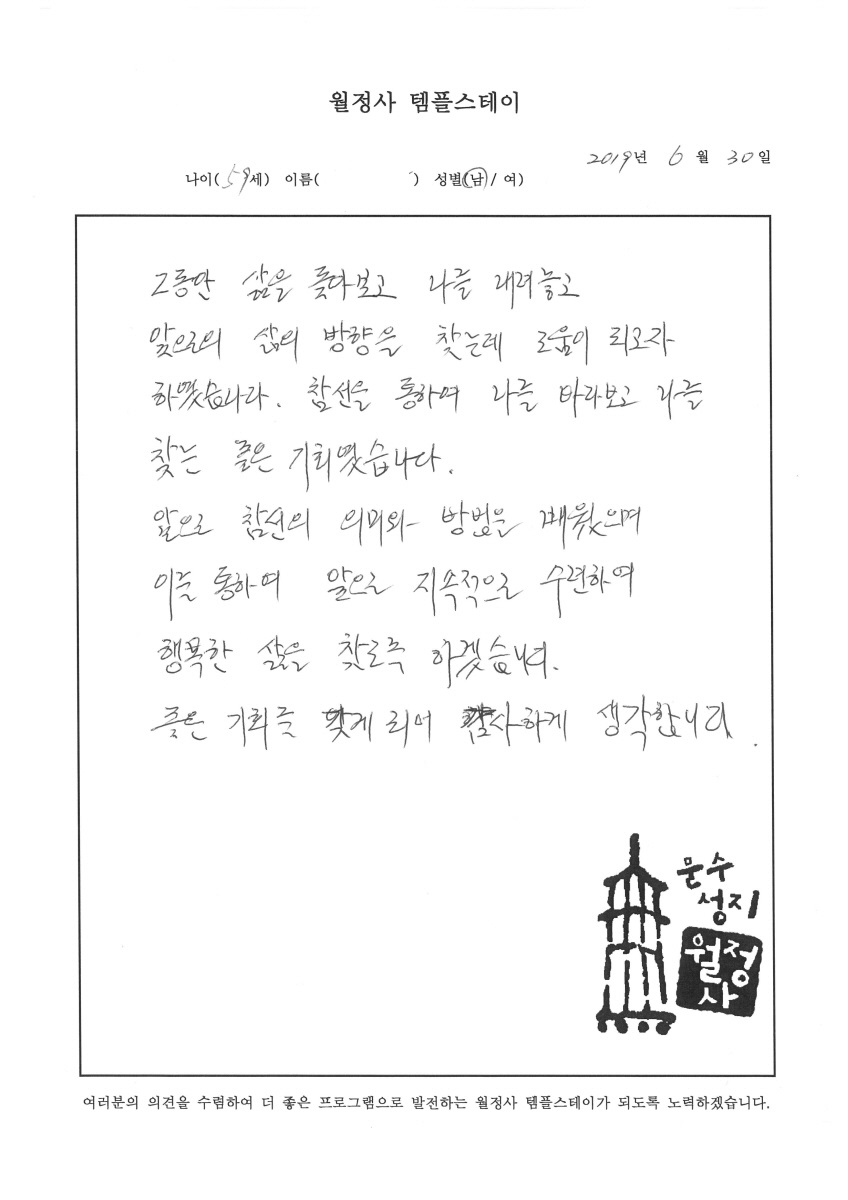 월정사 템플스테이
2019년 6월 30일
나이(59세) 이름( ) 성별(남/여)
그동안 삶을 돌아보고 나를 내려놓고
앞으로의 삶의 방향을 찾는데 도움이 되고자
하였습니다. 참선을 통하여 나를 바라보고 나를
찾는 좋은 기회였습니다.
앞으로 참선의 의미와 방법을 배웠으며
이를 통하여 앞으로 지속적으로 수련하여
행복한 삶을 찾도록 하겠습니다.
좋은 기회를 맞게 되어 감사하게 생각합니다.
문수
성지
월정
사
여러분의 의견을 수렴하여 더 좋은 프로그램으로 발전하는 월정사 템플스테이가 되도록 노력하겠습니다.